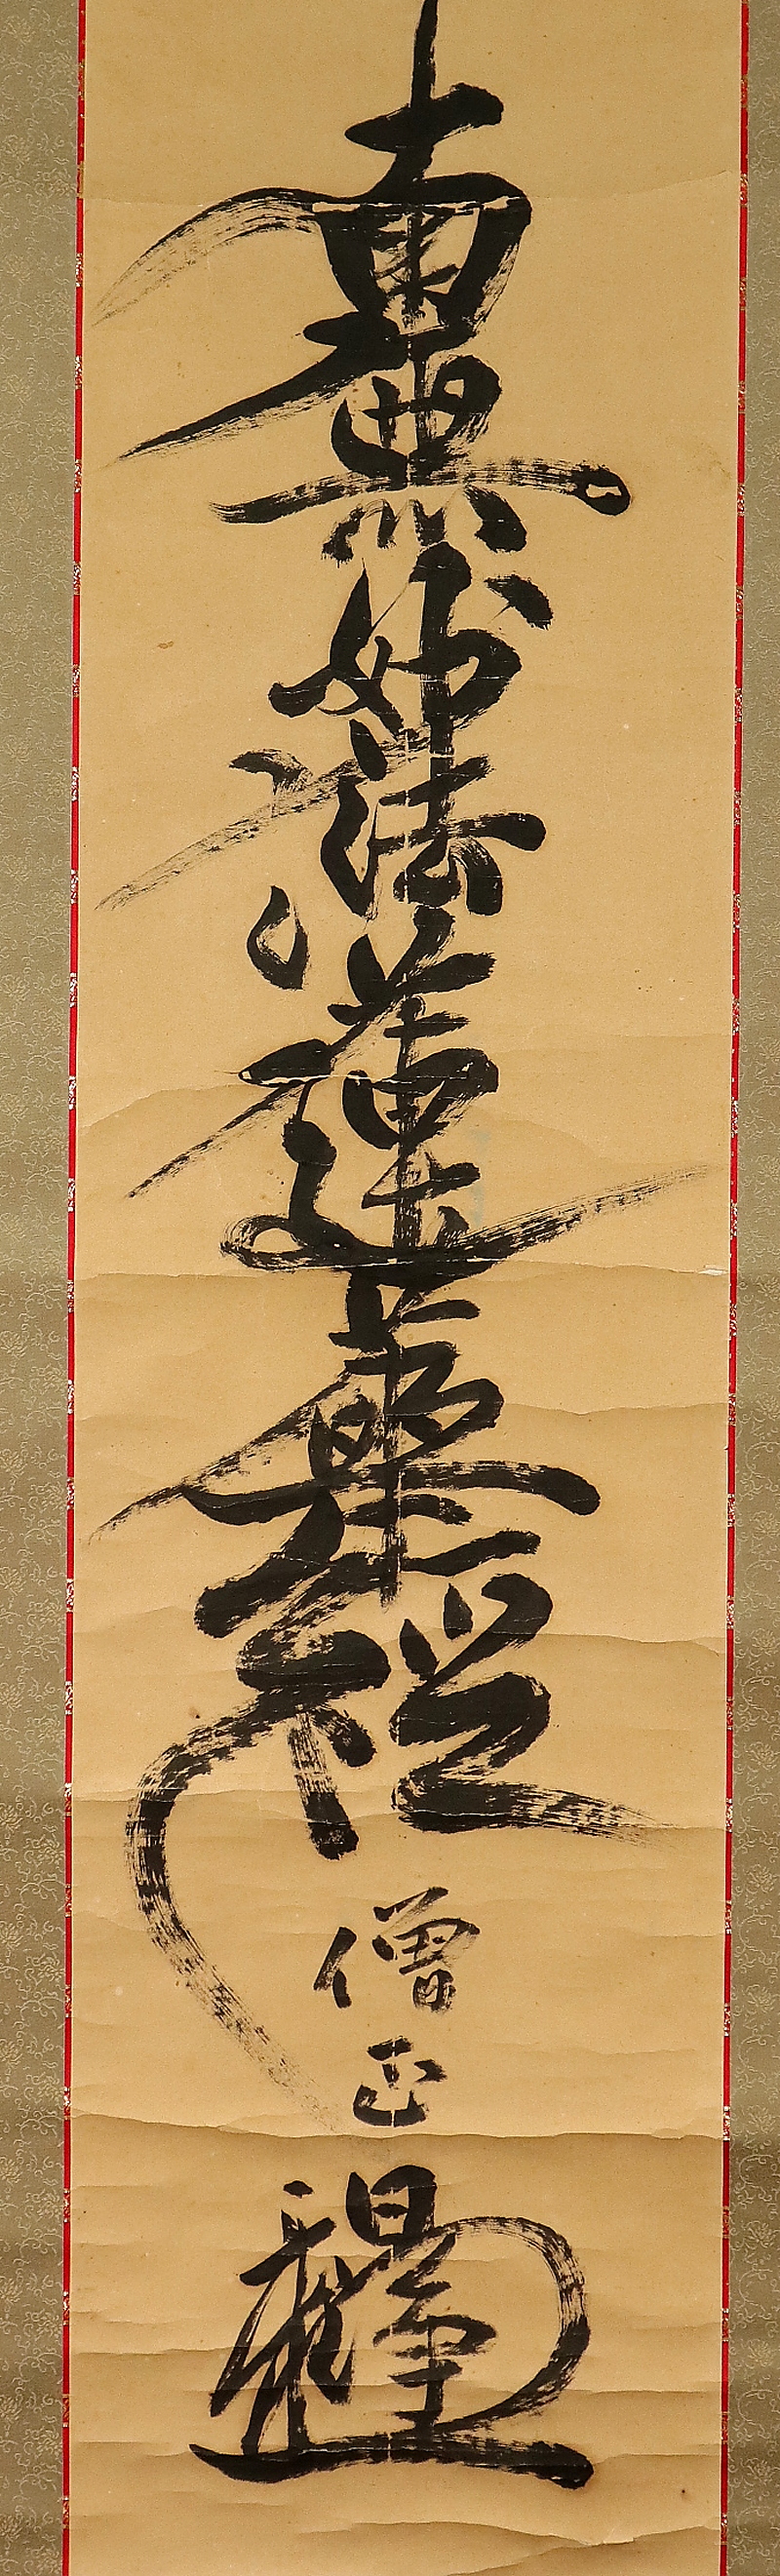 南無妙法蓮華経
僧正